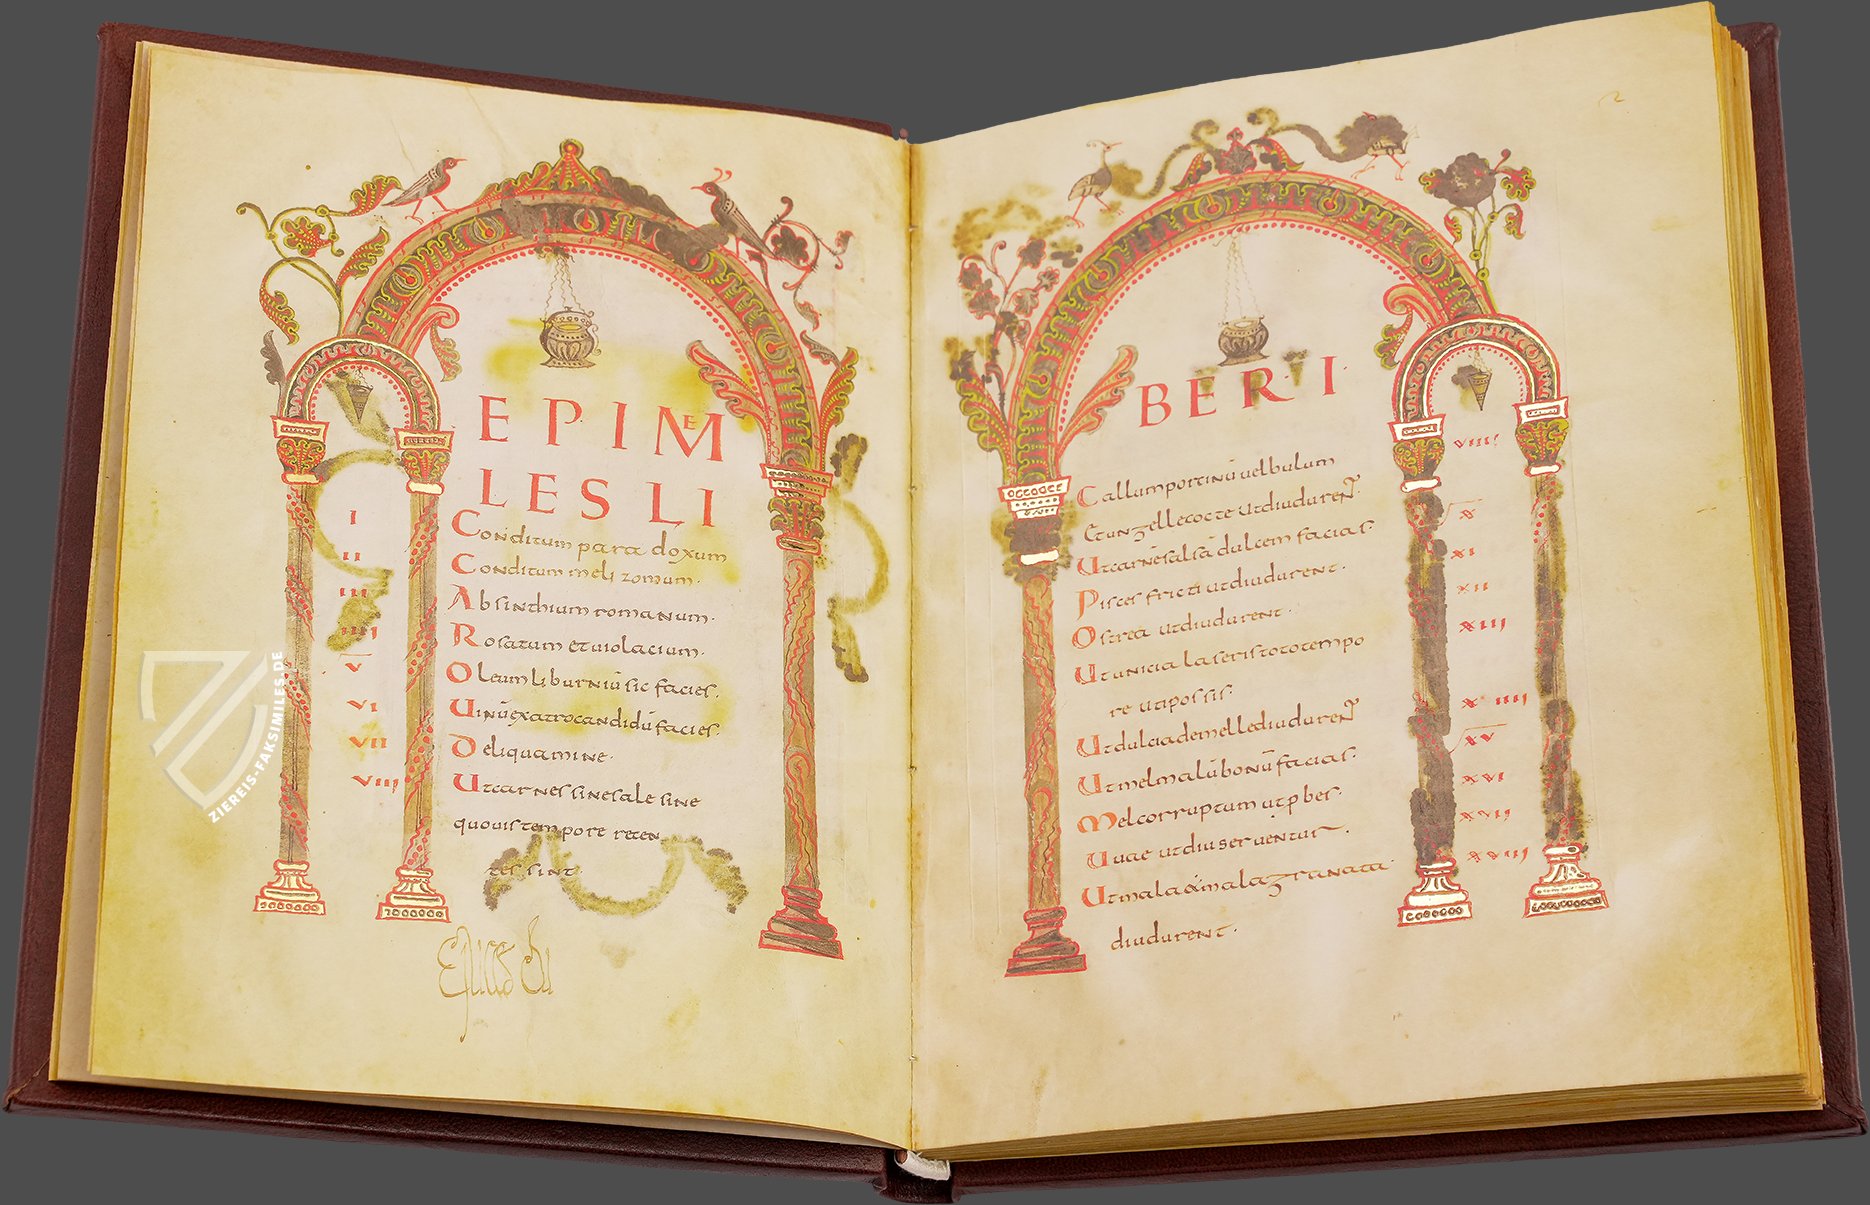 EPIMEM
LESLI
I
II
III
IIII
V
VI
VII
VIII
Conditum paradoxum
Conditum melizomum.
Absinthium romanum.
Rosatum et uiolacium.
Oleum liburniū sic facies.
Uinū ex atro candidū facies.
Deliquamine.
Ut carnes sine sale sine
quouis tempore recen
tes sint
2
BER·I·
Callum porcinū uel bulum
Et ungelle coctę ut diu durent.
Ut carnē salsā dulcem facias.
Pisces fricti ut diu durent.
Ostrea ut diu durent.
Ut uncia laseris toto tempo
re uti possis.
Ut dulcia de melle diu durent
Ut mel malū bonū facias.
Mel corruptum ut p̄bes.
Uuae ut diu seruentur.
Ut mala & mala granata
diu durent.
VIIII
X
XI
XII
XIII
XIIII
XV
XVI
XVII
XVIII
ZIEREIS-FAKSIMILES.DE